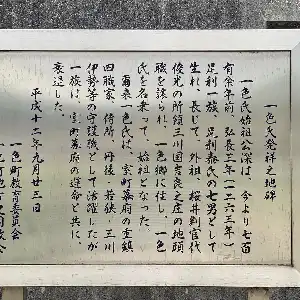 一色氏発祥之地碑
一色氏始祖公深は、今より七百
有余年前、弘長三年(一二六三年)
足利一族、足利泰氏の七男として
生れ、長じて、外祖、桜井判官代
俊光の所領三川国吉良之庄の地頭
職を譲られ、一色郷に住し、一色
氏を名乗って、始祖となった。
爾来一色氏は、室町幕府の重鎮
四職家、侍所、丹後・若狭・三川
伊勢等の守護職として活躍したが
一族は、室町幕府の運命と共に、
衰退した。
平成十二年九月廿三日
一色町教育委員会